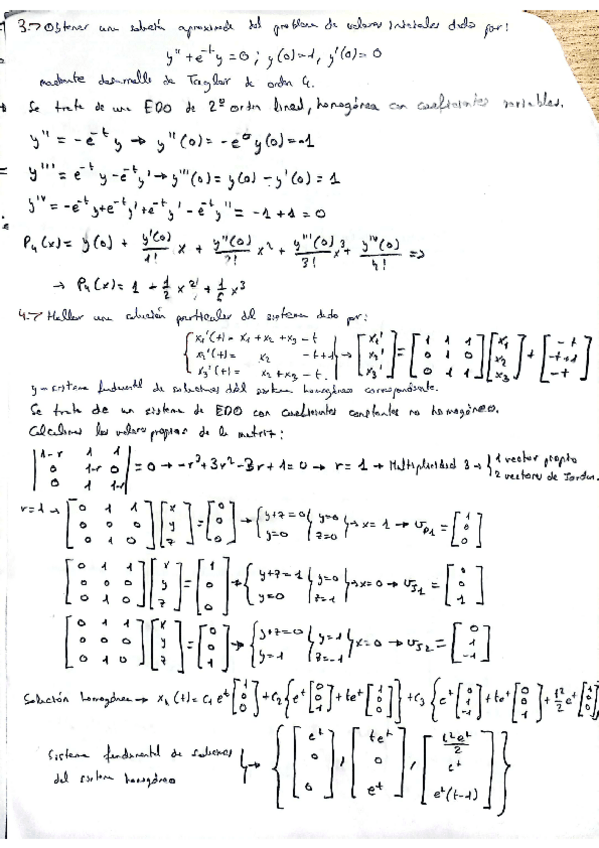 3.→ Obtener una solución aproximada del problema de valores iniciales dado por:
y'' + e^-t y = 0 ; y(0)=1, y'(0)=0
mediante desarrollo de Taylor de orden 4.
Se trata de una EDO de 2º orden lineal, homogénea con coeficientes variables.
y'' = -e^-t y → y''(0) = -e^0 y(0) = -1
y''' = e^-t y - e^-t y' → y'''(0) = y(0) - y'(0) = 1
y^IV = -e^-t y + e^-t y' + e^-t y' - e^-t y'' = -1+1 = 0
P4(x) = y(0) + y'(0)/1! x + y''(0)/2! x^2 + y'''(0)/3! x^3 + y^IV(0)/4! ⇒
→ P4(x) = 1 - 1/2 x^2 + 1/6 x^3
4.→ Hallar una solución particular del sistema dado por:
{ x1'(t) = x1 + x2 + x3 - t
x2'(t) = x2 - t+1
x3'(t) = x2 + x3 - t. } → [x1' x2' x3'] = [1 1 1; 0 1 0; 0 1 1] [x1 x2 x3] + [-t -t+1 -t]
y un sistema fundamental de soluciones del sistema homogéneo correspondiente.
Se trata de un sistema de EDO con coeficientes constantes no homogéneo.
Calculamos los valores propios de la matriz:
|1-r 1 1; 0 1-r 0; 0 1 1-r| = 0 → -r^3+3r^2-3r+1=0 → r=1 → Multiplicidad 3 → { 1 vector propio
2 vectores de Jordan.
r=1 → [0 1 1; 0 0 0; 0 1 0] [x y z] = [0 0 0] → { y+z=0 y=0 } { y=0 z=0 } → x=1 → v_P1 = [1 0 0]
[0 1 1; 0 0 0; 0 1 0] [x y z] = [1 0 0] → { y+z=1 y=0 } { y=0 z=1 } → x=0 → v_J1 = [0 0 1]
[0 1 1; 0 0 0; 0 1 0] [x y z] = [0 0 1] → { y+z=0 y=1 } { y=1 z=-1 } x=0 → v_J2 = [0 1 -1]
Solución homogénea → x_h(t) = c1 e^t [1 0 0] + c2 { e^t [0 0 1] + te^t [1 0 0] } + c3 { e^t [0 1 -1] + te^t [0 0 1] + t^2/2 e^t [1 0 0]
Sistema fundamental de soluciones
del sistema homogéneo } → { [e^t 0 0], [te^t 0 e^t], [t^2e^t/2 e^t e^t(t-1)] }